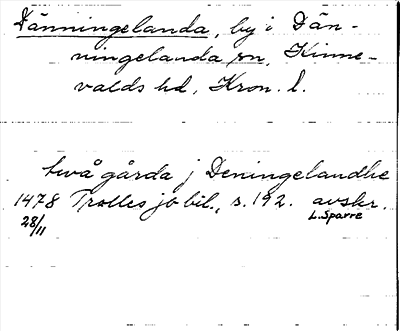 Dänningelanda, by i Dän-
ningelanda sn, Kinne-
valds hd, Kron. l.
två gårda j Deningelandhe
1478 Trolles jb bil., s. 192. avskr.
28/11 L. Sparre